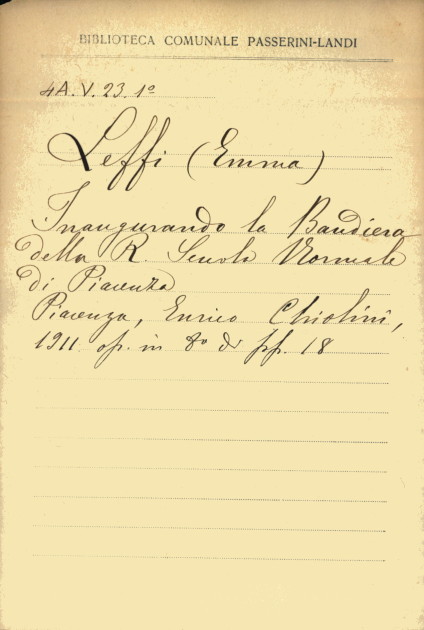 BIBLIOTECA COMUNALE PASSERINI-LANDI
4A.V.23.1º
Leffi (Emma)
Inaugurando la Bandiera
della R. Scuola Normale
di Piacenza
Piacenza, Enrico Chiolini,
1911 op. in 8º di pp. 18